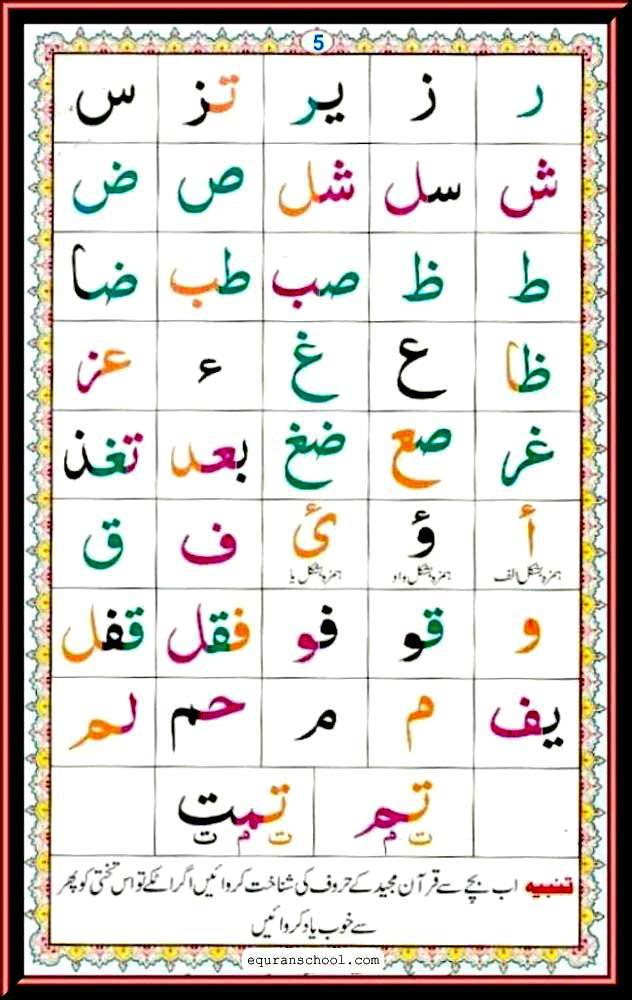 5
ر ز یر تز س
ش سل شل ص ض
ط ظ صب طب ضا
ظا ع غ ء عز
غر صع ضغ بعد تغذ
أ ؤ ئ ف ق
ہمزہ بشکل الف ہمزہ بشکل واو ہمزہ بشکل یا
و قو فو فقل قفل
یف م م حم لم
تم تمت
ت م ت م ت
تنبیہ اب بچے سے قرآن مجید کے حروف کی شناخت کروائیں اگر اٹکے تو اس تختی کو پھر
سے خوب یاد کروائیں
equranschool.com